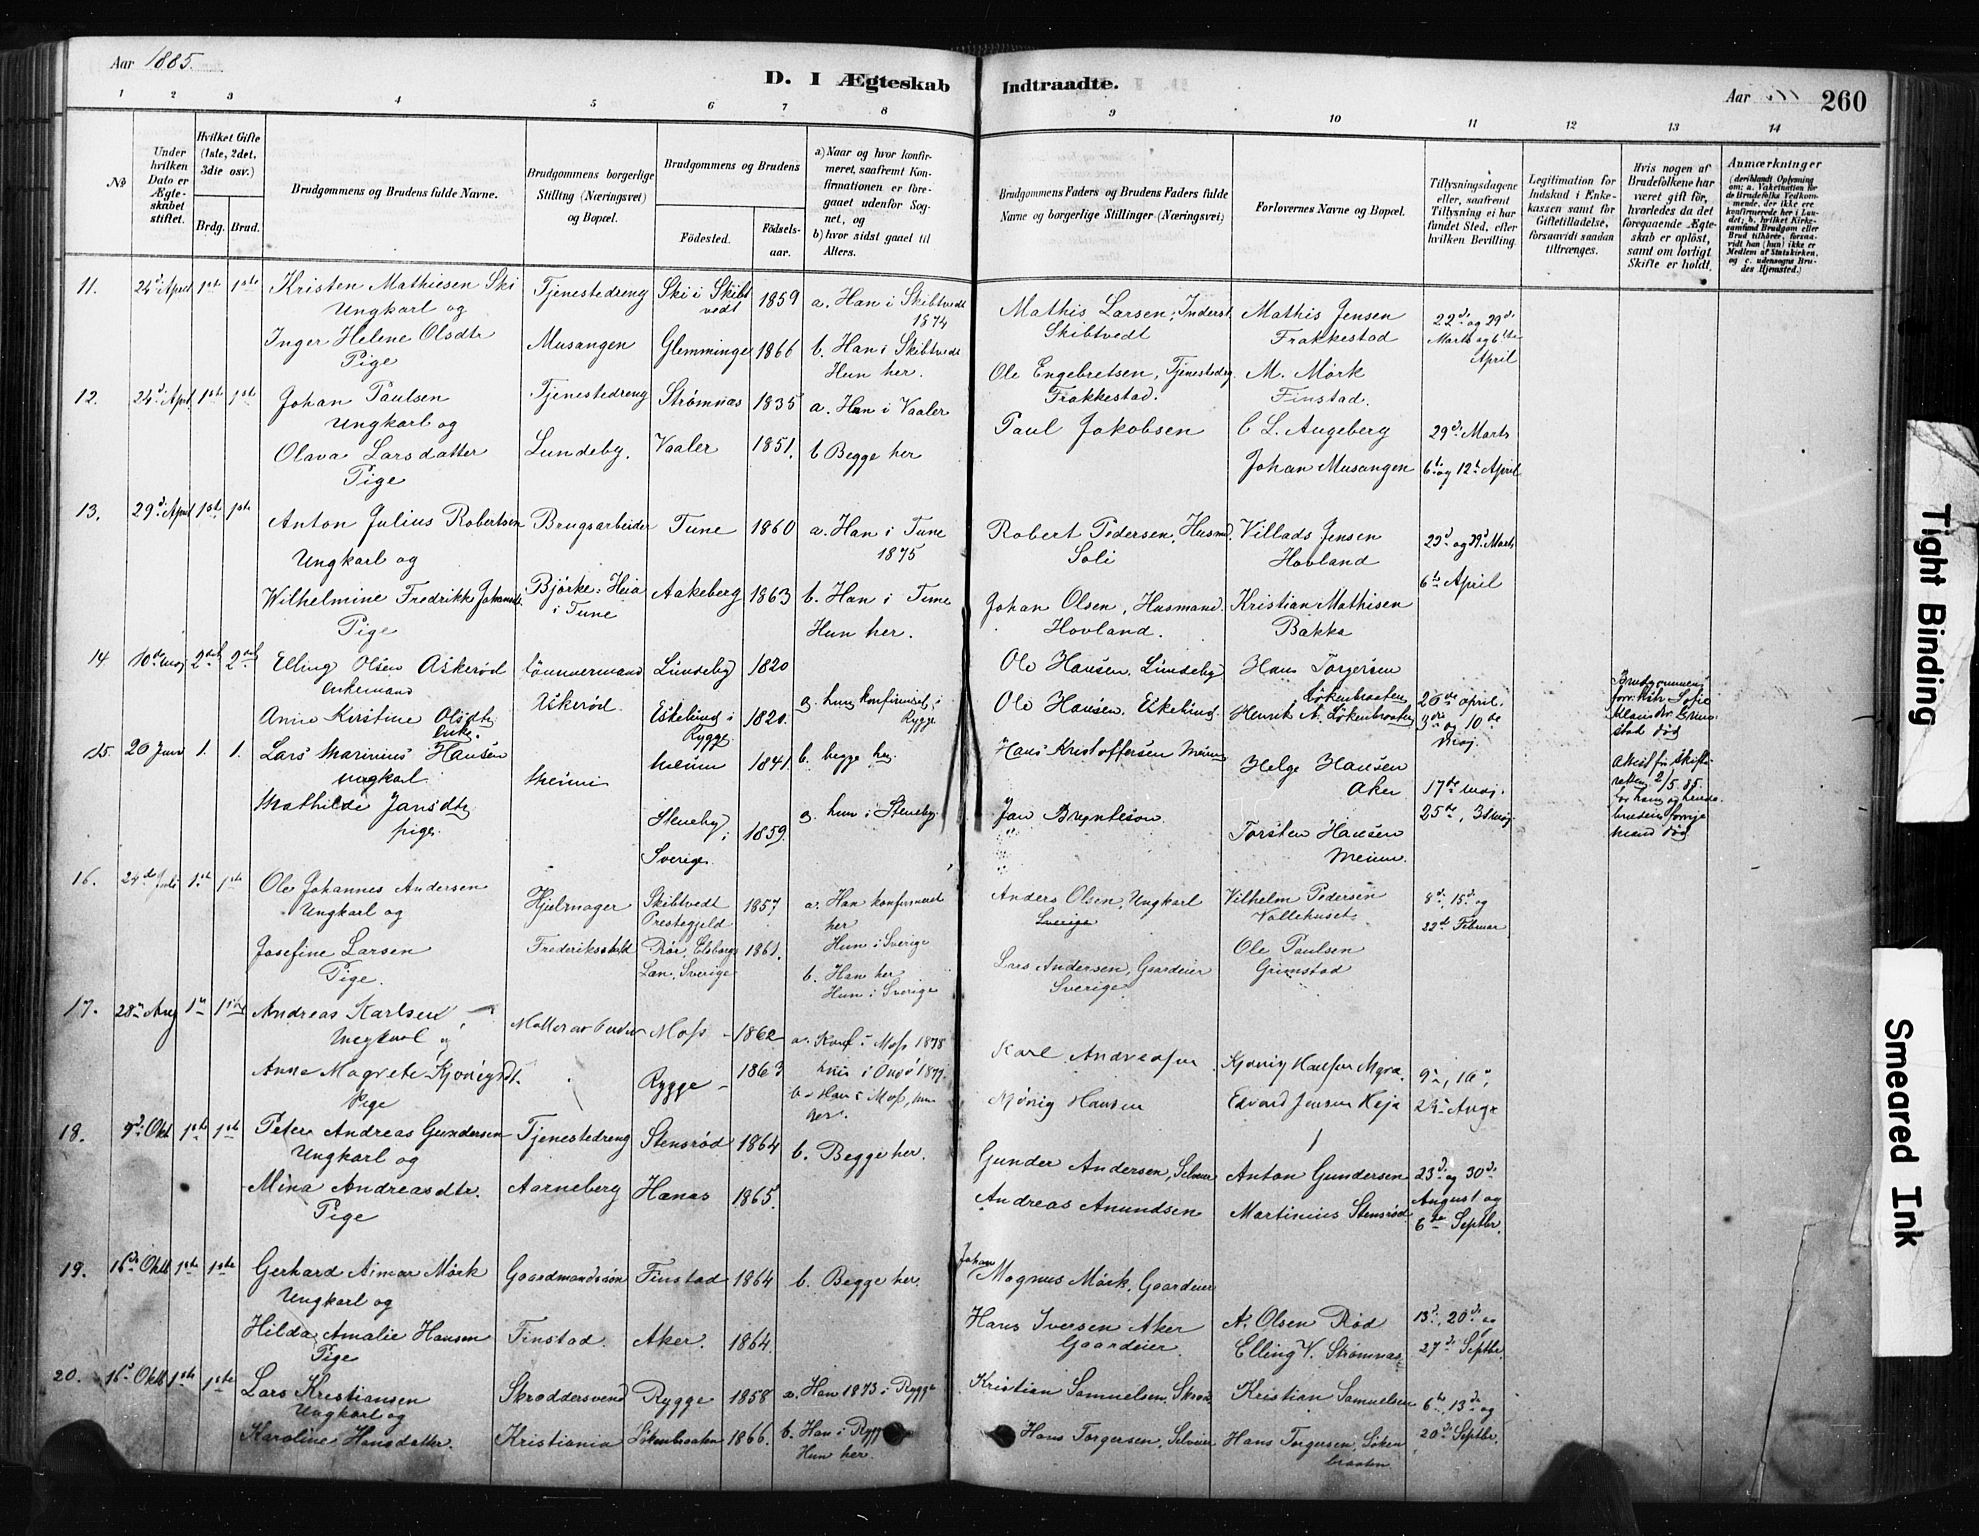 Aar 1885.
D. I Ægteskab Indtraadte.
Aar 260
1 2 3 4 5 6 7 8 9 10 11 12 13 14
No
Under hvilken Dato er Ægteskabet stiftet.
Hvilket Gifte (1ste, 2det, 3die osv.)
Brdg. Brud.
Brudgommens og Brudens fulde Navne.
Brudgommens borgerlige Stilling (Næringsvei) og Bopæl.
Brudgommens og Brudens
Fødested.
Fødselsaar.
a) Naar og hvor konfirmeret, saafremt Konfirmationen er foregaaet udenfor Sognet, og
b) hvor sidst gaaet til Alters.
Brudgommens Faders og Brudens Faders fulde Navne og borgerlige Stillinger (Næringsvei)
Forlovernes Navne og Bopæl.
Tillysningsdagene eller, saafremt Tillysning ei har fundet Sted, efter hvilken Bevilling.
Legitimation for Indskud i Enkekassen samt for Giftetilladelse, forsaavidt saadan tiltrænges.
Hvis nogen af Brudefolkene har været gift før, hvorledes da det foregaaende Ægteskab er opløst, samt om lovligt Skifte er holdt.
Anmærkninger
(deriblandt Oplysning om: a. Vaksination for de Brudefolks Vedkommende, der ikke ere konfirmerede her i Landet; b. hvilket Kirkesamfund Brudgom eller Brud tilhører, forsaavidt han (hun) ikke er Medlem af Statskirken, og c. udensogns Brudes Hjemsted.)
11. 24d. April 1ste 1ste Kristen Mathiesen Ski Tjenestedreng Ski i Skibtvedt 1859 a. Han i Skibtvedt 1874
Ungkarl og
Inger Helene Olsdtr Musangen Glemminge 1866 b. Han i Skibtvedt
Pige Hun her.
Mathis Larsen, Inderst Mathis Jensen 22d. og 29d.
Skibtvedt Frakkestad Marts og 6te April
Ole Engebretsen, Tjenestedrg M. Mörk
Frakkestad. Finstad.
12. 24d. April 1ste 1ste Johan Paulsen Tjenestedreng Strømnas 1835 a. Han i Vaaler
Ungkarl og
Olava Larsdatter Lundeby. Vaaler 1851. b Begge her
Pige
Paul Jakobsen C L. Augeberg 29d. Marts
Johan Musangen 6te og 12te April
13. 29d. April 1ste 1ste Anton Julius Robertsen Brugsarbeider Tune 1860 a. Han i Tune 1875
Ungkarl og
Wilhelmine Fredrikke Johansdr Bjørke-Heia i Tune Aakeberg 1863 b. Han i Tune
Pige Hun her.
Robert Pedersen, Husmd Villads Jensen
Soli Hovland 6te April
Johan Olsen, Husmand. Kristian Mathisen
Hovland. Bakka
14 10de Maj 2det 2det Elling Olsen Askerød Tømmermand Lundeby 1820
enkemand
Anne Kirstine Olsdtr Askerød. Eskelund i Rygge 1820. a. hun konfirmert i Rygge
enke.
b. begge her.
Ole Hansen, Lundeby Hans Torgersen Løkenbraaten 26de april.
Ole Hansen, Eskelund Henrik A. Løkenbraaten 3die og 10de Maj
Brudgommens forr. Sofie død
15. 20 Juni 1. 1. Lars Marinius Hansen Meum Meum 1841.
ungkarl.
Mathilde Jansdtr Steneby i Sverige. 1859 a. hun i Steneby.
pige.
Hans Kristoffersen Meum Helge Hansen Aker 17de Maj.
Jan Bryntesen Torsten Hansen Meum. 25de, 31 Maj
16. 24de Juli 1ste 1ste Ole Johannes Andersen Hjulmager Skibtvedt Prestegjeld 1857 a. Han konfirmeret her
Ungkarl og Hun i Sverige
Josefine Larsen Frederikshald Elsborgs Län, Sverige 1861. b. Han her
Pige. Hun i Sverige
Anders Olsen, Ungkarl Vilhelm Pedersen 8d., 15d. og
Sverige Vallehuset 22d. Februar
Lars Andersen, Gaardeier Ole Paulsen
Sverige Grimstad
17. 28de Aug 1ste 1ste Andreas Karlsen, Moss 1862 a. Konf i Moss 1878
Ungkarl og
Anne Magrete Kjønigsdt. Rygge 1863 hun i Onsø 1877
Pige b. Han i Moss, hun her.
Karl Andreasen Kjønig Hansen
Kjønig Hansen Edvard Jensen Heja
18. Okt 1ste 1ste Peter Andreas Gundersen Tjenestedreng Stensrød 1864 b. Begge her.
Ungkarl og
Mina Andreasdtr. Aarneberg Hanas 1865.
Pige
Gunder Andersen, Selveier Anton Gundersen 23d. og 30d.
Andreas Amundsen Martinius Stensrød August og 6te Septbr.
19. 16de Oktb 1ste 1ste Gerhard Aimar Mörk Gaardmandssøn Finstad 1864 b. Begge her.
Ungkarl og
Hilda Amalie Hansen Finstad. Aker. 1864.
Pige
Johan Magnus Mörk, Gaardeier
Hans Iversen Aker A. Olsen Rød 13d., 20d. og
Gaardeier. Elling V. Strømnas 27d. Septbr.
20. 16d. Oktb 1ste 1ste Lars Kristiansen Skræddersvend Rygge 1858 a. Han 1873 i Rygge
Ungkarl og
Karoline Hansdatter. Kristiania Løkenbraaten 1866. b. Han i Rygge
Hun her.
Kristian Samuelsen, Kristian Samuelsen 6te, 13d. og
Hans Torgersen, Selveier Hans Torgersen, Løkenbraaten 20d. Septbr.
Tight Binding
Smeared Ink